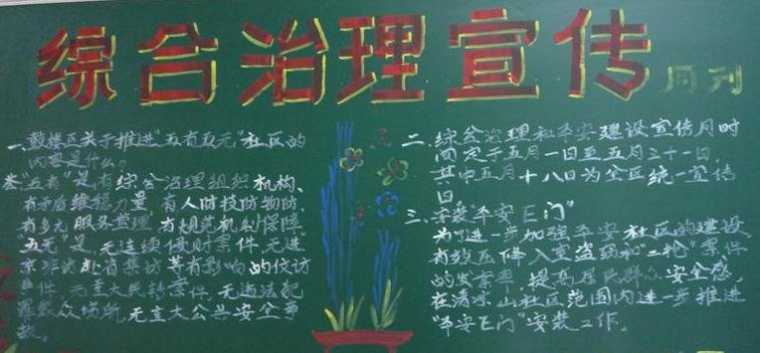 综合治理宣传
月刊
一、鼓楼区关于推进"五有五无"社区的
内容是什么。
答"五有"是有综合治理组织机构、
有矛盾维稳力量、有人防技防物防、
有多元服务管理、有规范机制保障
"五无"是无连续侵财案件、无进
京非访赴省集访等有影响的信访
事件、无重大民转案件、无违法犯
罪群众倾诉、无重大公共安全事
故。
二、综合治理和平安建设宣传月时
间定于五月一日至五月三十一日,
其中五月十八日为全区统一宣传
日。
三、安装"平安E门"
为了进一步加强平安社区的建设
有效压降入室盗窃和"二轮"案件
的发案率,提高居民群众安全感,
在清凉山社区范围内进一步推进
"平安E门"安装工作。